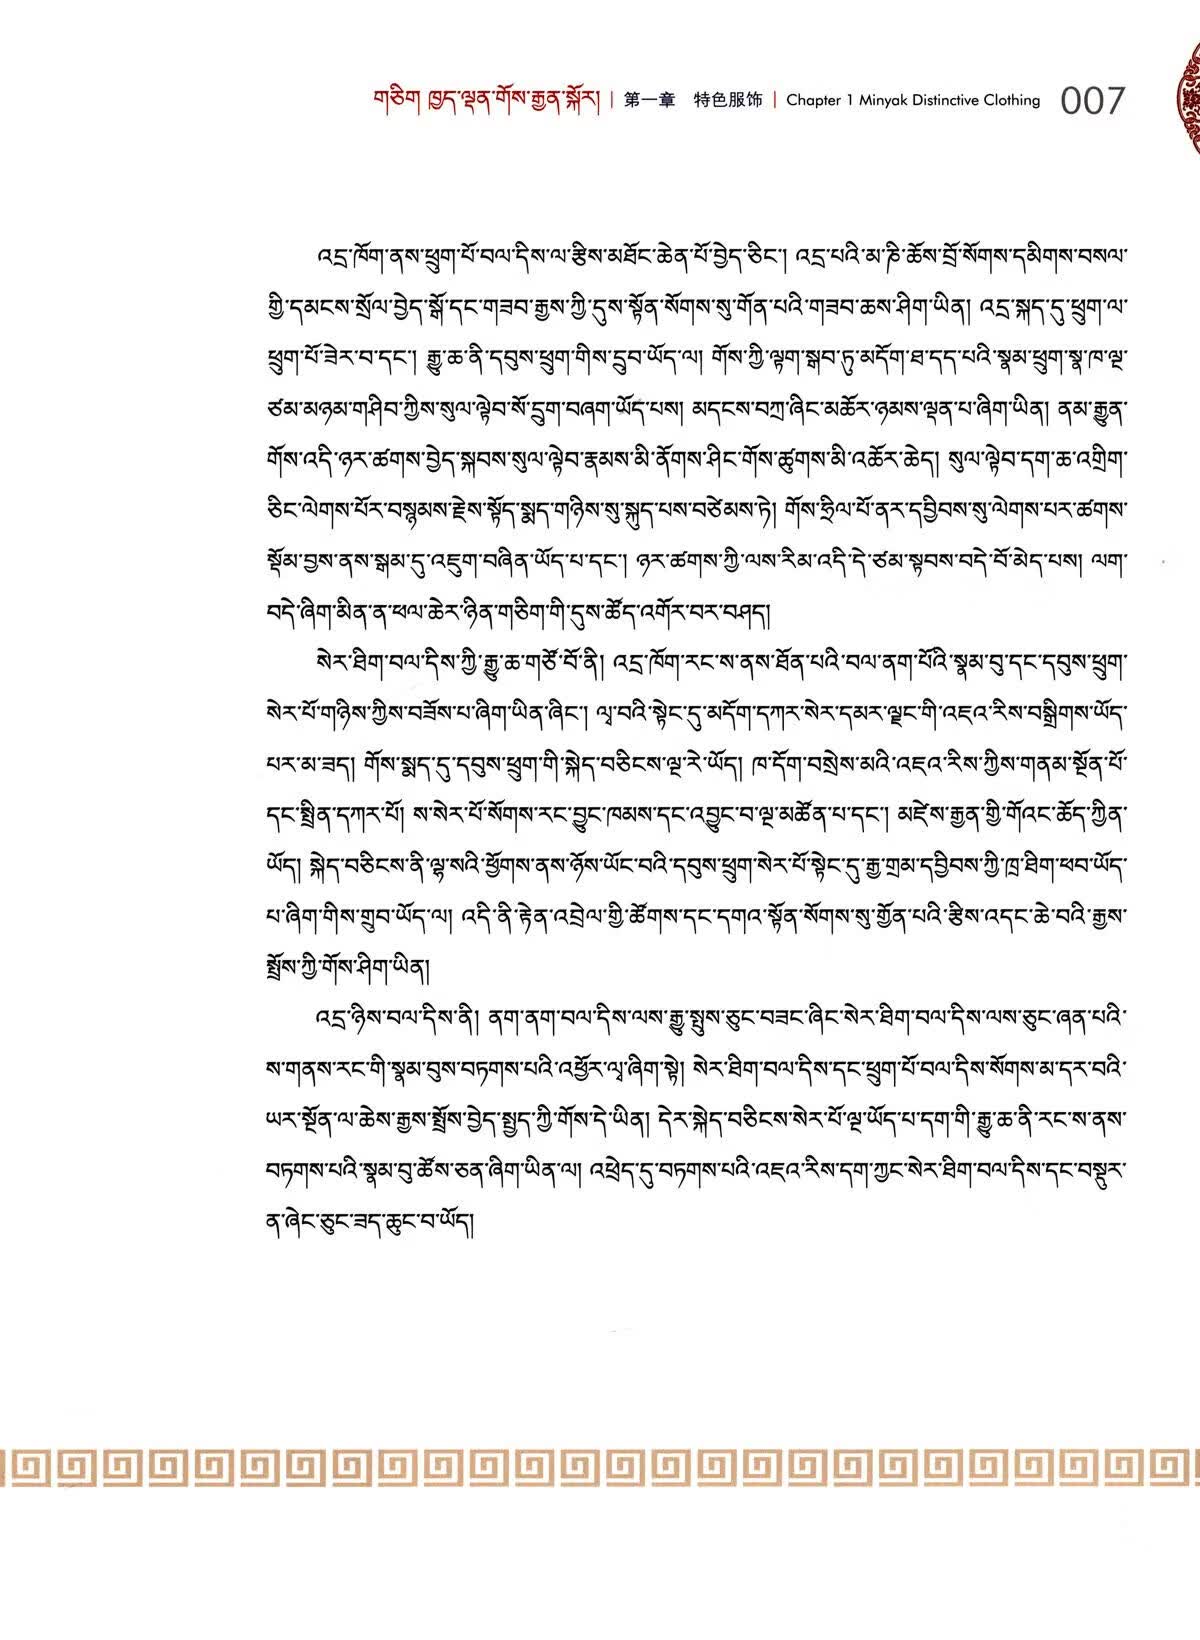 གཅིག ཁྱད་ལྡན་གོས་རྒྱན་སྐོར། | 第一章 特色服饰 | Chapter 1 Minyak Distinctive Clothing 007
འདྲ་ཁོག་ནས་ཕྲུག་པོ་བལ་དིས་ལ་རྩིས་མཐོང་ཆེན་པོ་བྱེད་ཅིང་། འདྲ་པའི་མ་ཎི་ཆོས་བྲོ་སོགས་དམིགས་བསལ་
གྱི་དམངས་སྲོལ་བྱེད་སྒོ་དང་གཟབ་རྒྱས་ཀྱི་དུས་སྟོན་སོགས་སུ་གོན་པའི་གཟབ་ཆས་ཤིག་ཡིན། འདྲ་སྐད་དུ་ཕྲུག་ལ་
ཕྲུག་པོ་ཟེར་བ་དང་། རྒྱུ་ཆ་ནི་དབུས་ཕྲུག་གིས་དྲུབ་ཡོད་ལ། གོས་ཀྱི་ལྟག་སྒབ་ཏུ་མདོག་ཐ་དད་པའི་སྣམ་ཕྲུག་སྣ་ཁ་ལྔ་
ཙམ་མཉམ་གཤིབ་ཀྱིས་སུལ་ལྟེབ་སོ་དྲུག་བཞག་ཡོད་པས། མདངས་བཀྲ་ཞིང་མཆོར་ཉམས་ལྡན་པ་ཞིག་ཡིན། ནམ་རྒྱུན་
གོས་འདི་ཉར་ཚགས་བྱེད་སྐབས་སུལ་ལྟེབ་རྣམས་མི་ནོགས་ཤིང་གོས་ཚུགས་མི་འཆོར་ཆེད། སུལ་ལྟེབ་དག་ཆ་འགྲིག་
ཅིང་ལེགས་པོར་བསྙམས་རྗེས་སྟོད་སྨད་གཉིས་སུ་སྐུད་པས་བཙེམས་ཏེ། གོས་ཧྲིལ་པོ་ནར་དབྱིབས་སུ་ལེགས་པར་ཚགས་
སྡོམ་བྱས་ནས་སྒམ་དུ་འཇུག་བཞིན་ཡོད་པ་དང་། ཉར་ཚགས་ཀྱི་ལས་རིམ་འདི་དེ་ཙམ་སྟབས་བདེ་བོ་མེད་པས། ལག་
བདེ་ཞིག་མིན་ན་ཕལ་ཆེར་ཉིན་གཅིག་གི་དུས་ཚོད་འགོར་བར་བཤད།
སེར་ཐིག་བལ་དིས་ཀྱི་རྒྱུ་ཆ་གཙོ་བོ་ནི། འདྲ་ཁོག་རང་ས་ནས་ཐོན་པའི་བལ་ནག་པོའི་སྣམ་བུ་དང་དབུས་ཕྲུག་
སེར་པོ་གཉིས་ཀྱིས་བཟོས་པ་ཞིག་ཡིན་ཞིང་། ལྭ་བའི་སྟེང་དུ་མདོག་དཀར་སེར་དམར་ལྗང་གི་འཇའ་རིས་བསྒྲིགས་ཡོད་
པར་མ་ཟད། གོས་སྨད་དུ་དབུས་ཕྲུག་གི་སྐེད་བཅིངས་ལྔ་རེ་ཡོད། ཁ་དོག་བསྲེས་མའི་འཇའ་རིས་ཀྱིས་གནམ་སྔོན་པོ་
དང་སྤྲིན་དཀར་པོ། ས་སེར་པོ་སོགས་རང་བྱུང་ཁམས་དང་འབྱུང་བ་ལྔ་མཚོན་པ་དང་། མཛེས་རྒྱན་གྱི་གོའང་ཆོད་ཀྱིན་
ཡོད། སྐེད་བཅིངས་ནི་ལྷ་སའི་ཕྱོགས་ནས་ཉོས་ཡོང་བའི་དབུས་ཕྲུག་སེར་པོ་སྟེང་དུ་རྒྱ་གྲམ་དབྱིབས་ཀྱི་ཁྲ་ཐིག་ཕབ་ཡོད་
པ་ཞིག་གིས་གྲུབ་ཡོད་ལ། འདི་ནི་རྟེན་འབྲེལ་གྱི་ཚོགས་དང་དགའ་སྟོན་སོགས་སུ་གྱོན་པའི་རྩིས་འདང་ཆེ་བའི་རྒྱས་
སྤྲོས་ཀྱི་གོས་ཤིག་ཡིན།
འདྲ་ཉིས་བལ་དིས་ནི། ནག་ནག་བལ་དིས་ལས་རྒྱུ་སྤུས་ཅུང་བཟང་ཞིང་སེར་ཐིག་བལ་དིས་ལས་ཅུང་ཞན་པའི་
ས་གནས་རང་གི་སྣམ་བུས་བཏགས་པའི་འཕྱོར་ལྭ་ཞིག་སྟེ། སེར་ཐིག་བལ་དིས་དང་ཕྲུག་པོ་བལ་དིས་སོགས་མ་དར་བའི་
ཡར་སྔོན་ལ་ཆེས་རྒྱས་སྤྲོས་བྱེད་སྤྱད་ཀྱི་གོས་དེ་ཡིན། དེར་སྐེད་བཅིངས་སེར་པོ་ལྔ་ཡོད་པ་དག་གི་རྒྱུ་ཆ་ནི་རང་ས་ནས་
བཏགས་པའི་སྣམ་བུ་ཚོས་ཅན་ཞིག་ཡིན་ལ། འཕྲེད་དུ་བཏགས་པའི་འཇའ་རིས་དག་ཀྱང་སེར་ཐིག་བལ་དིས་དང་བསྡུར་
ན་ཞེང་ཅུང་ཟད་ཆུང་བ་ཡོད།